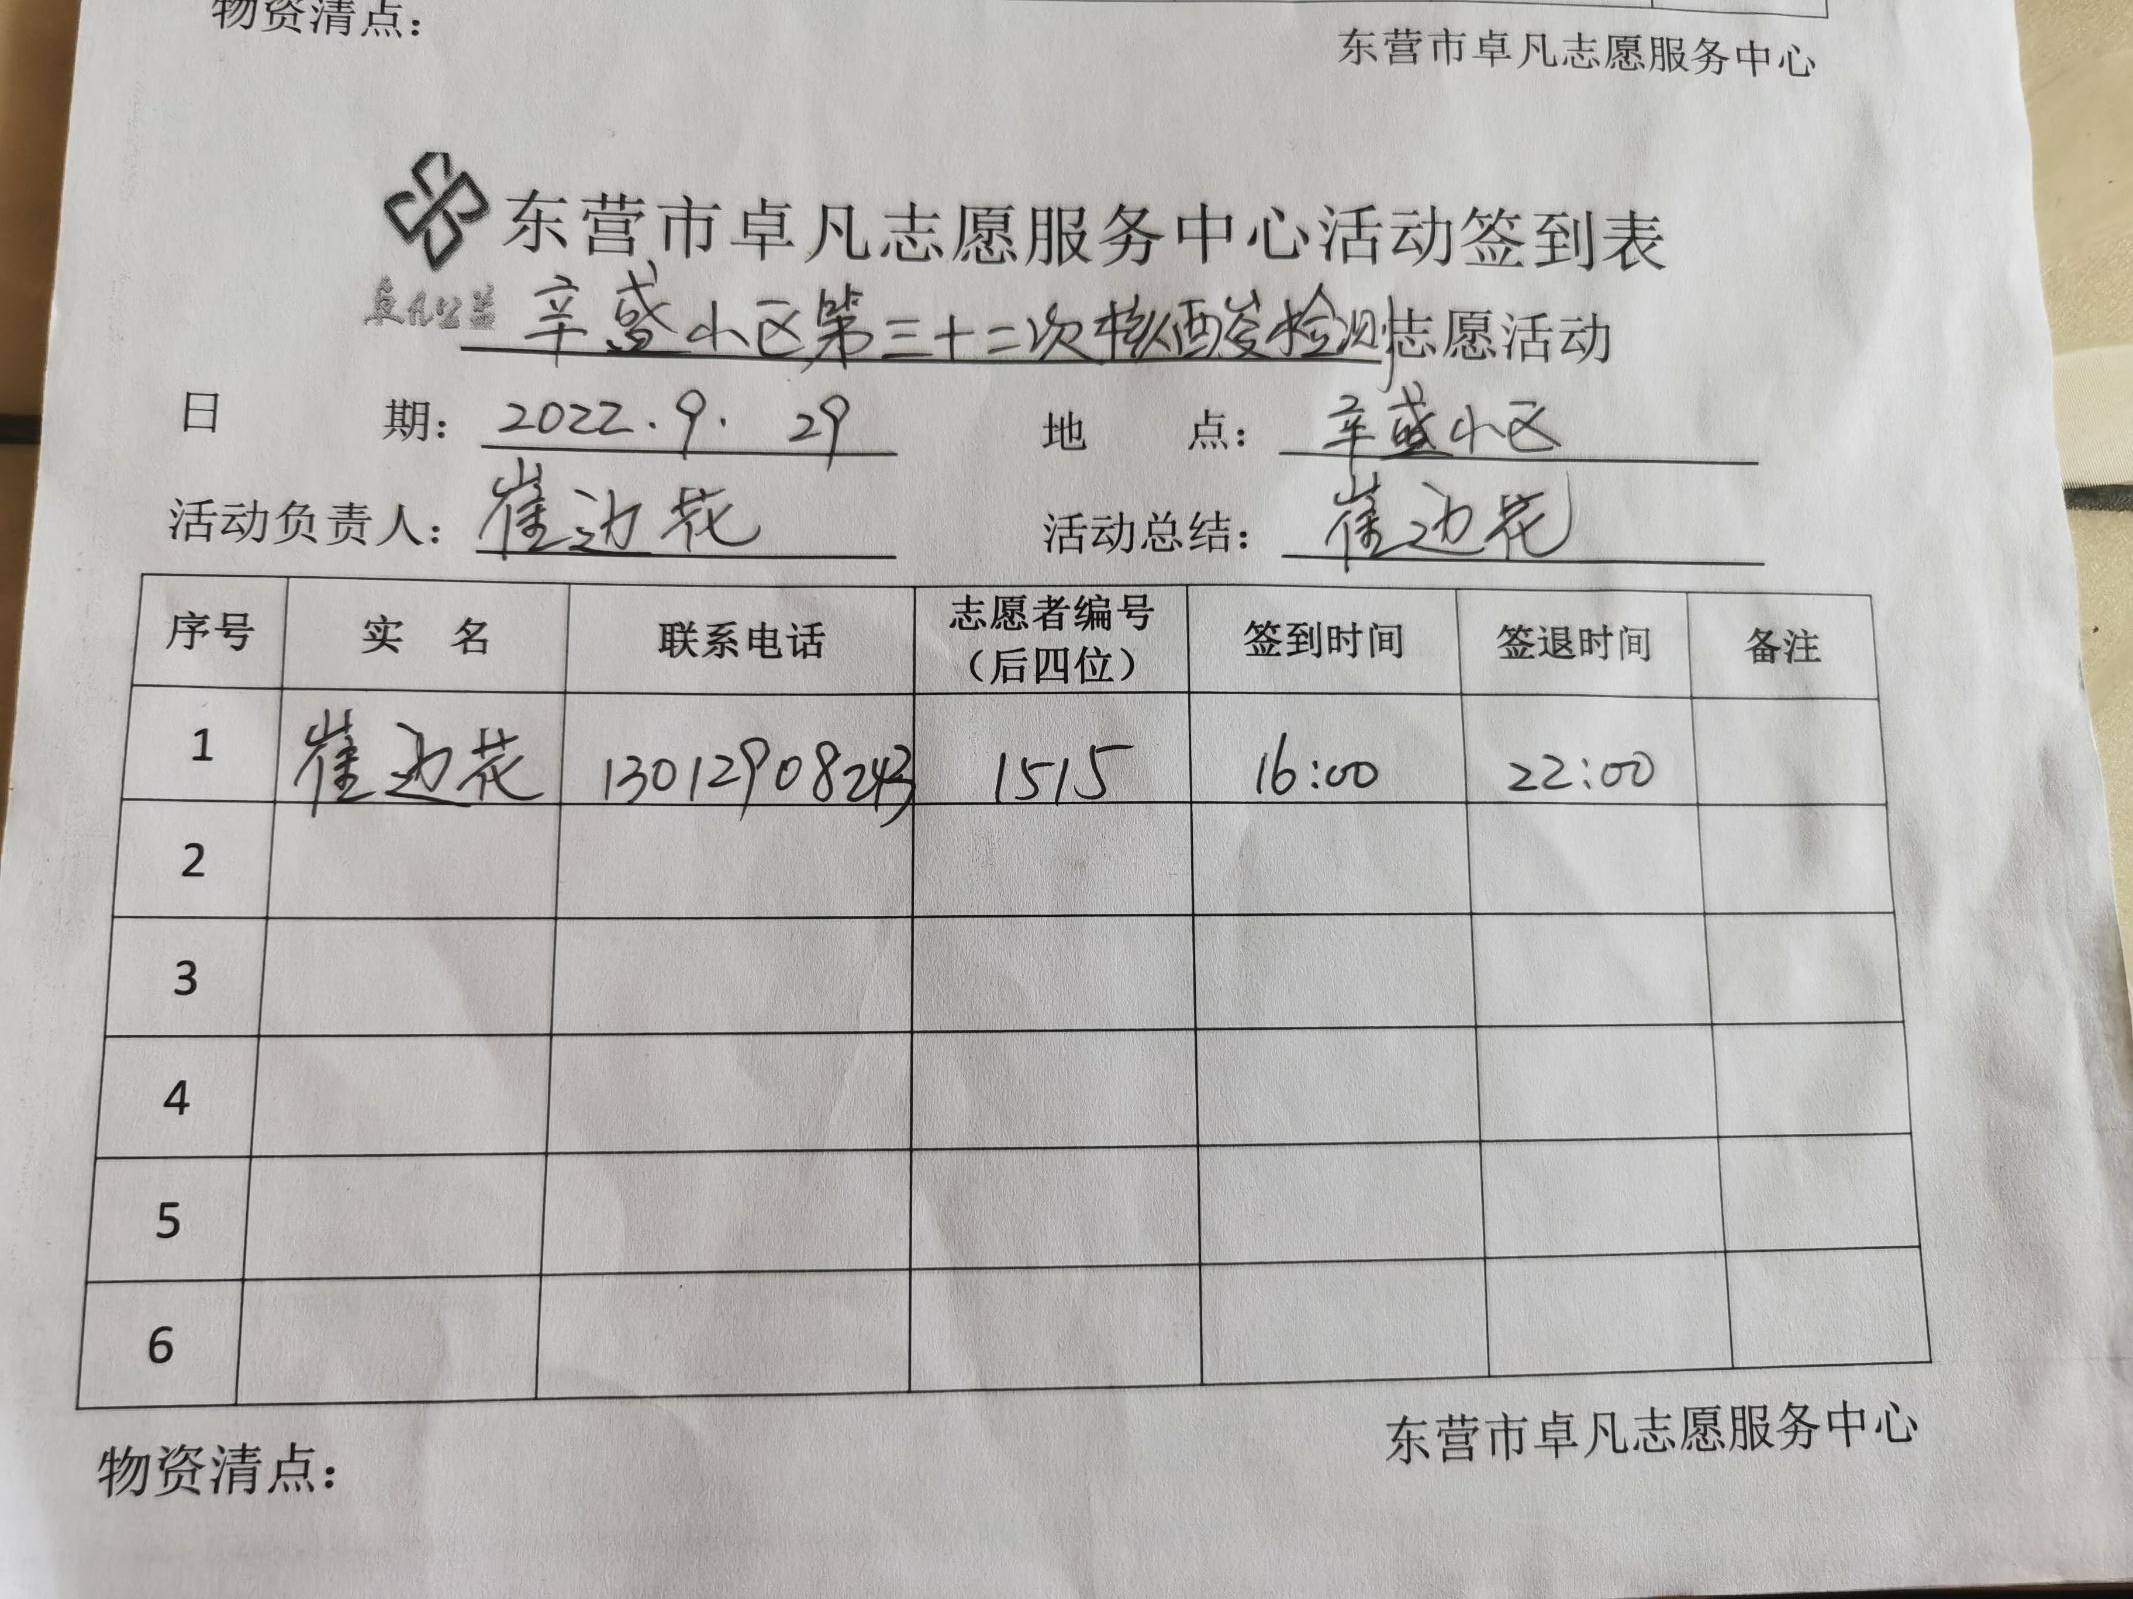 物资清点：
东营市卓凡志愿服务中心
东营市卓凡志愿服务中心活动签到表
卓凡公益
辛盛小区第三十二次核酸检测志愿活动
日 期：2022.9.29 地 点：辛盛小区
活动负责人：崔边花 活动总结：崔边花
序号 实 名 联系电话 志愿者编号（后四位） 签到时间 签退时间 备注
1 崔边花 13012908243 1515 16:00 22:00
2
3
4
5
6
东营市卓凡志愿服务中心
物资清点：